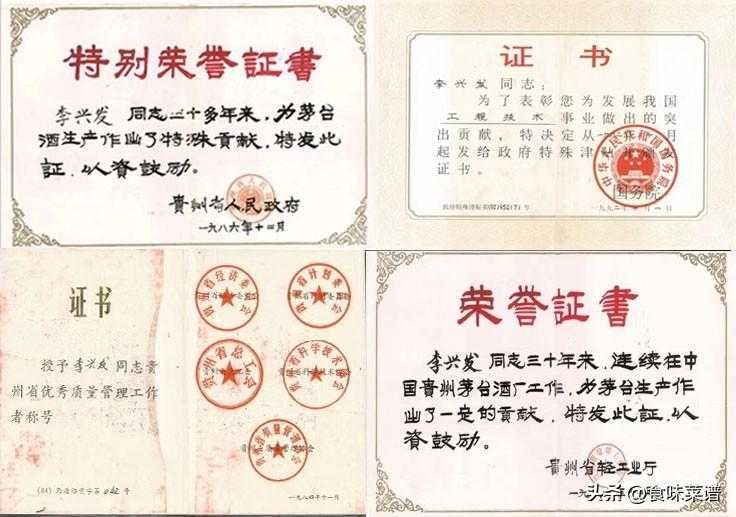 特别荣誉証書
李兴发 同志三十多年来，为茅台
酒生产作出了特殊贡献，特发此
証，以資鼓励。
貴州省人民政府
一九八六年十二月
证书
李兴发同志：
为了表彰您为发展我国
工程技术事业做出的突
出贡献，特决定从一九
月
起发给政府特殊津贴
证书。
国务院
中华人民共和国国务院
证书
授予李兴发同志贵
州省优秀质量管理工作
者称号
贵州省经济委员会
贵州省计划委员会
贵州省总工会
贵州省科学技术协会
一九八四年十一月
荣誉証書
李兴发 同志三十年来，连续在中
国貴州茅台酒厂工作，为茅台生产作
出了一定的贡献，特发此証，以
資鼓励。
貴州省轻工业厅
头条@食味菜谱